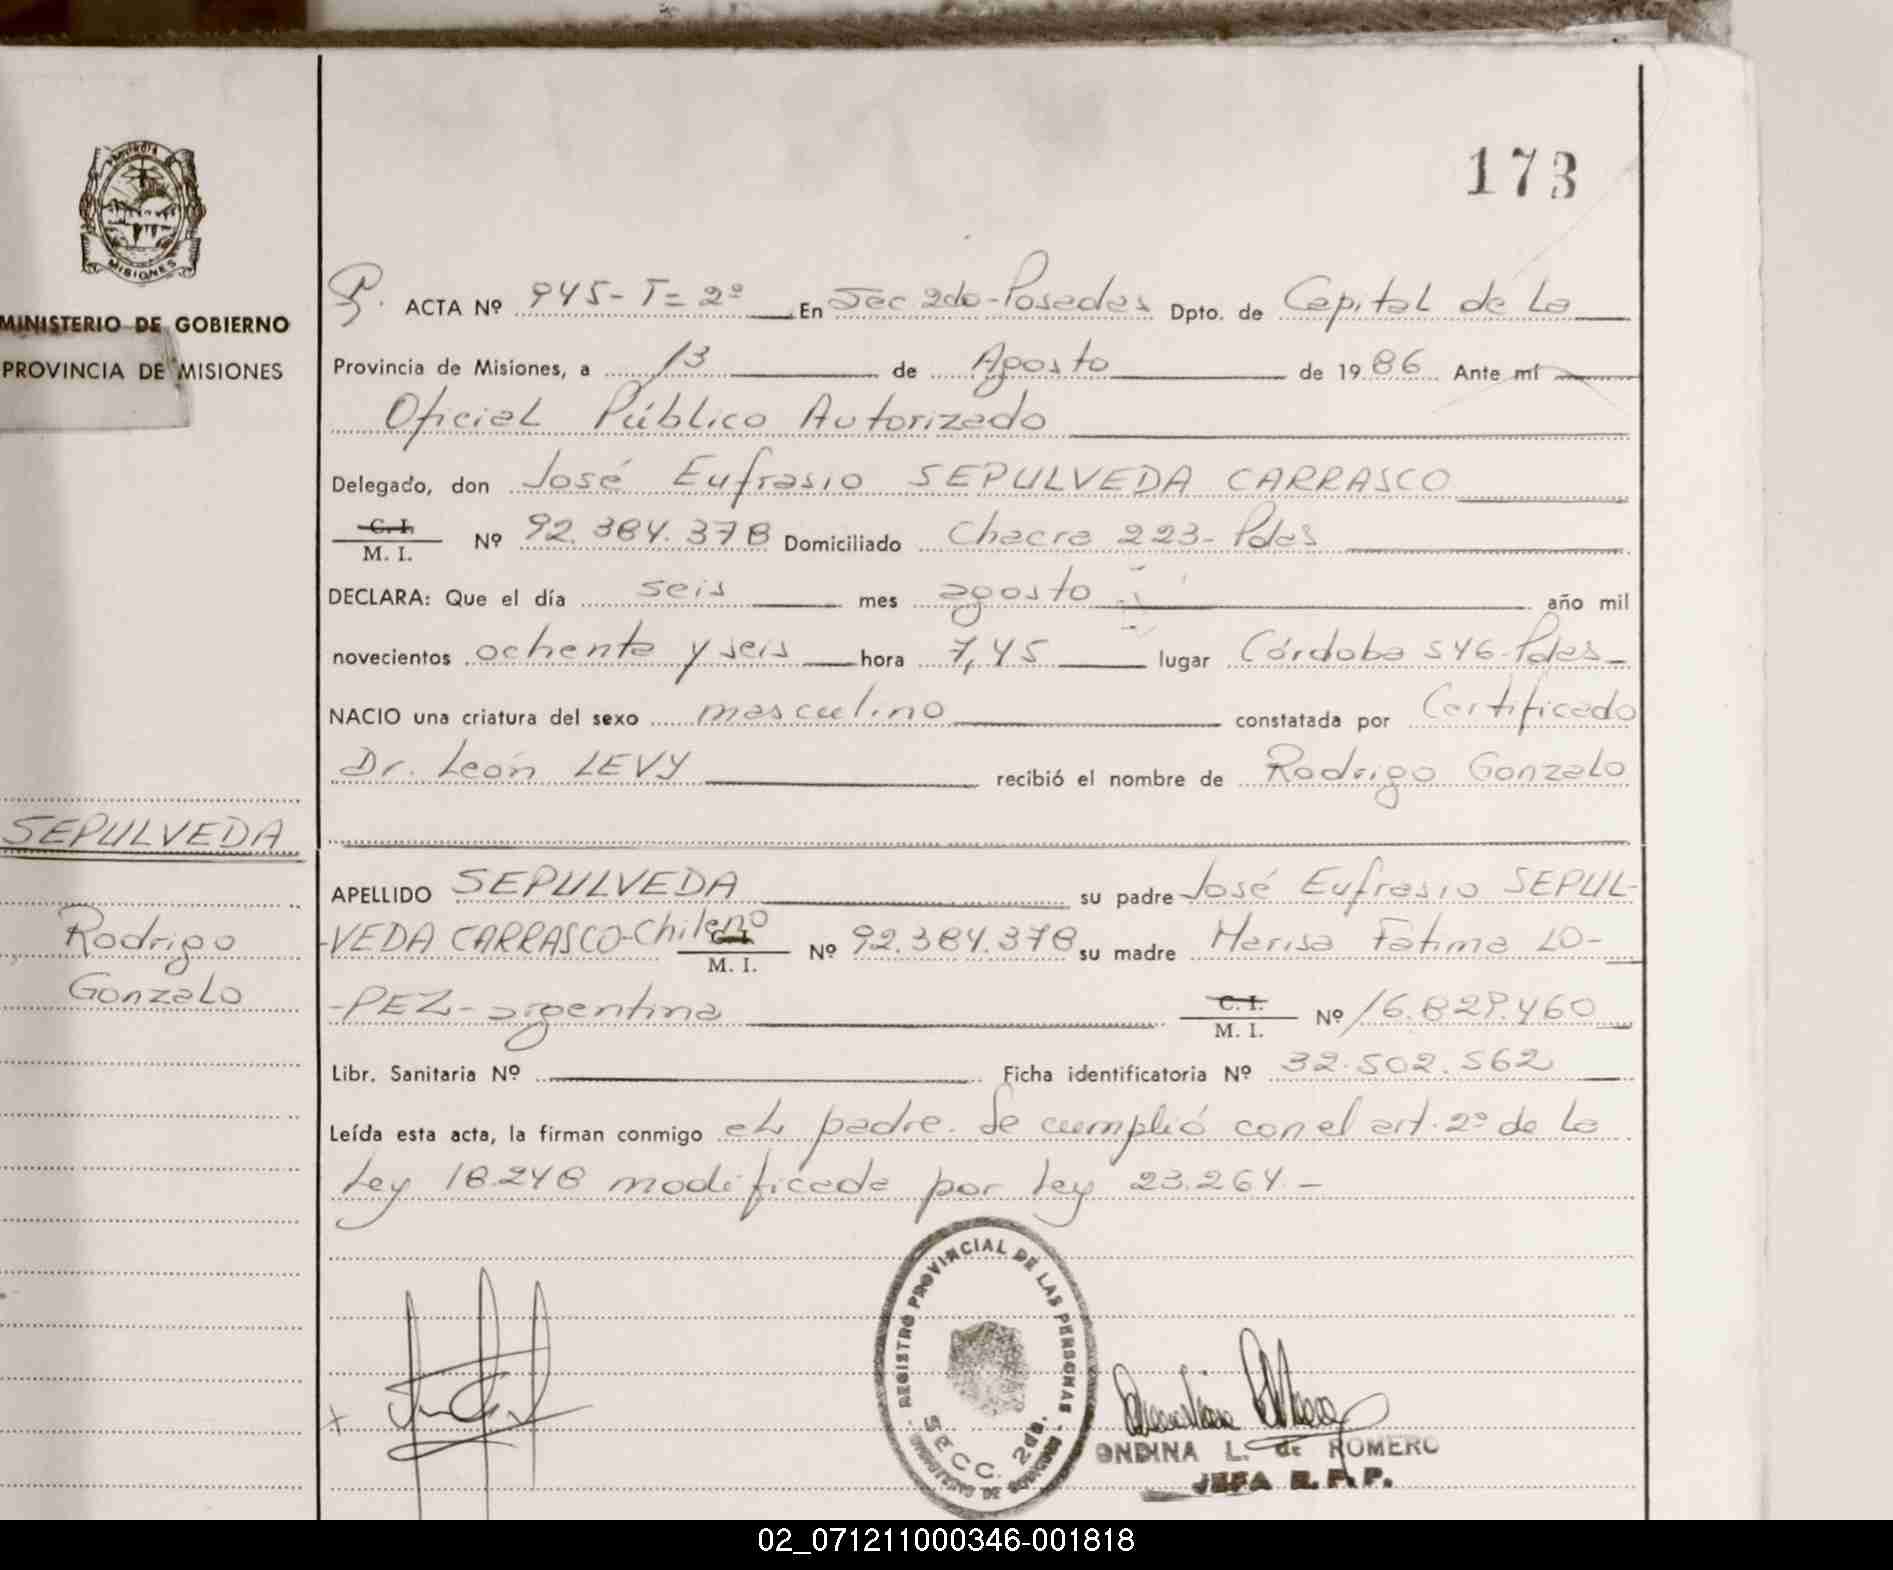 173
PROVINCIA
MISIONES
MINISTERIO DE GOBIERNO
PROVINCIA DE MISIONES
ACTA Nº 945- T= 2º En Sec 2do-Posadas Dpto. de Capital de La
Provincia de Misiones, a 13 de Agosto de 1986 Ante mí
Oficial Público Autorizado
Delegado, don José Eufrasio SEPULVEDA CARRASCO
C. I.
M. I. Nº 92.384.378 Domiciliado Chacra 223- Pdas
DECLARA: Que el día seis mes agosto año mil
novecientos ochenta y seis hora 7,45 lugar Córdoba 546-Pdas
NACIO una criatura del sexo masculino constatada por Certificado
Dr. León LEVY recibió el nombre de Rodrigo Gonzalo
SEPULVEDA
Rodrigo
Gonzalo
APELLIDO SEPULVEDA su padre José Eufrasio SEPUL-
-VEDA CARRASCO-Chileno C. I. M. I. Nº 92.384.378 su madre Marisa Fatima LO-
-PEZ- argentina C. I. M. I. Nº 16.829.460
Libr. Sanitaria Nº Ficha identificatoria Nº 32.502.562
Leída esta acta, la firman conmigo el padre. Se cumplió con el art. 2º de la
Ley 18.248 modificada por Ley 23.264.-
REGISTRO PROVINCIAL DE LAS PERSONAS
SECC. 2da.
ONDINA L. de ROMERO
JEFA R. P. P.
02_071211000346-001818